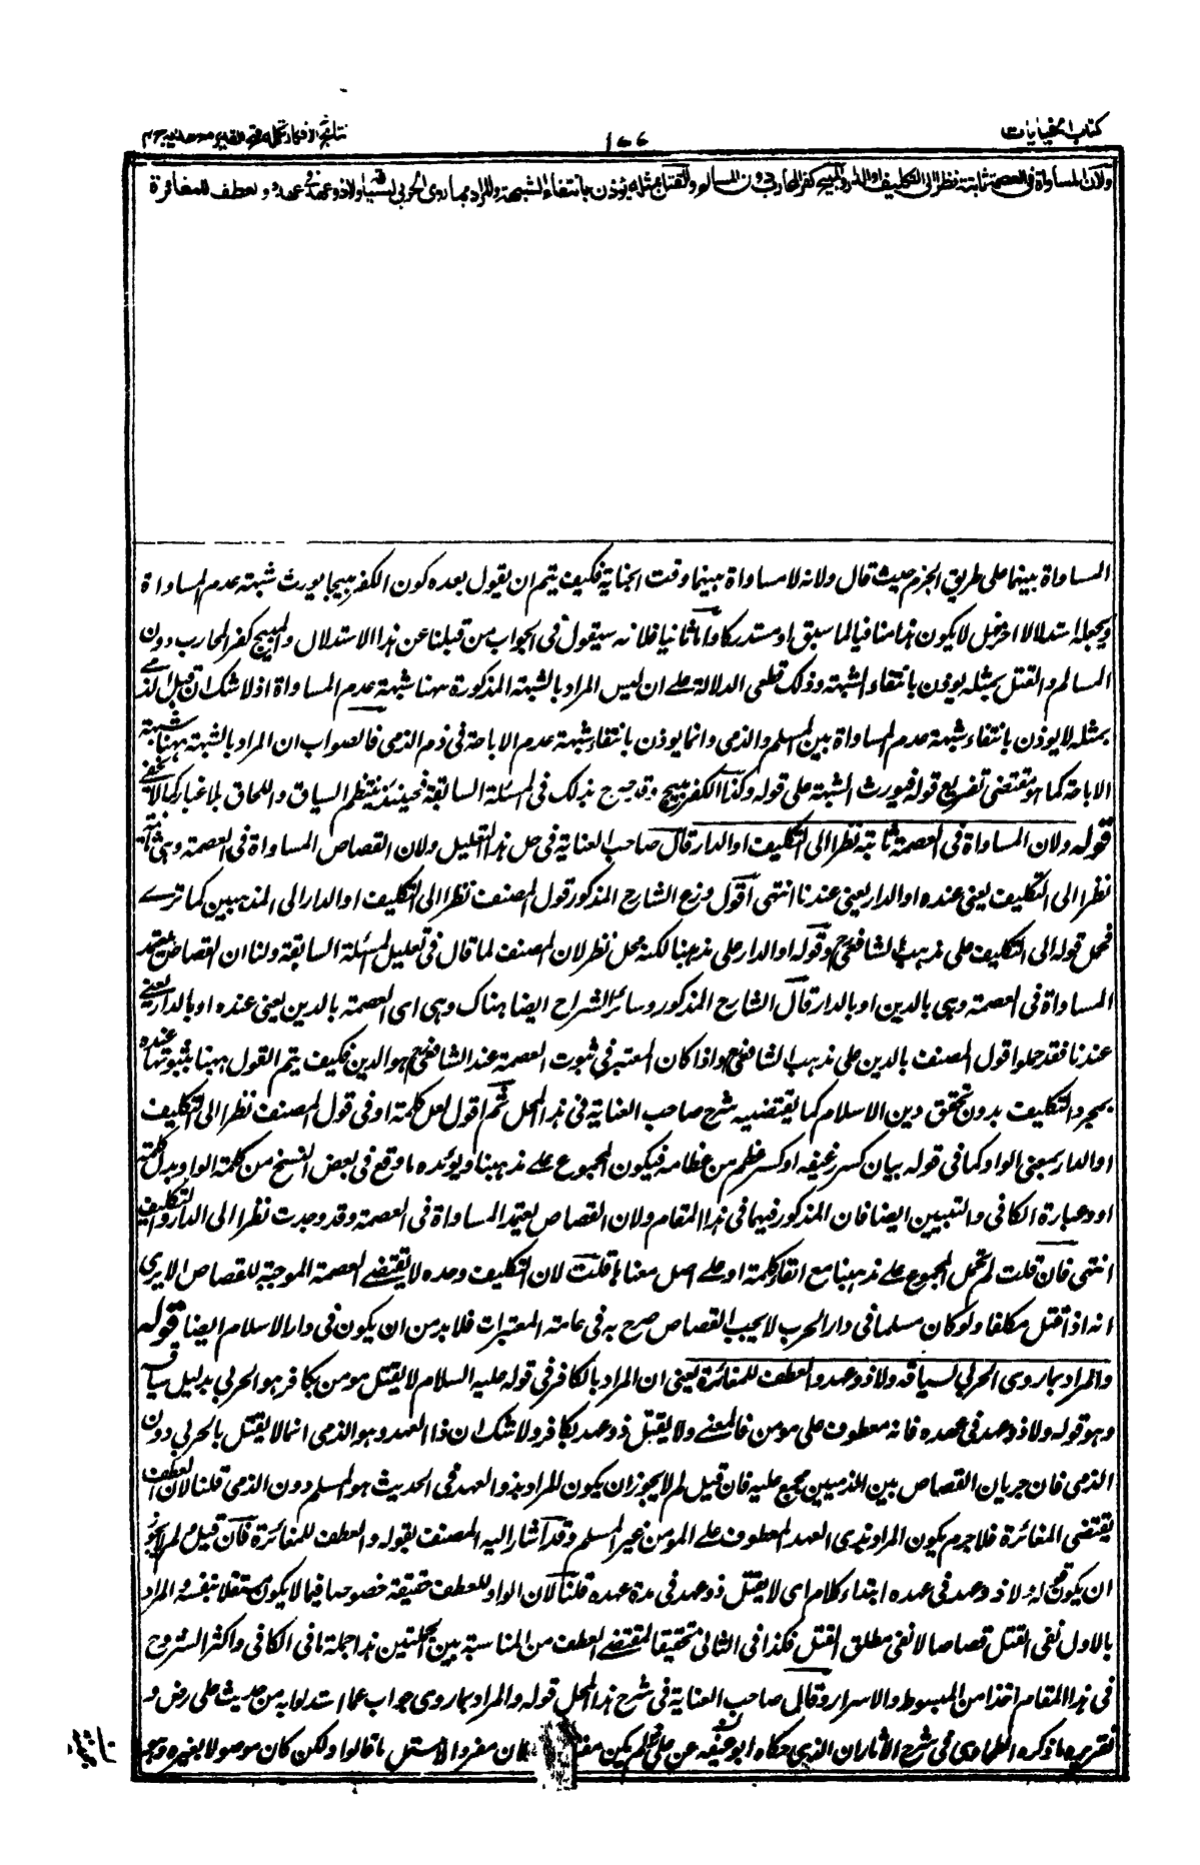 كتاب الجنايات
١٤٤
نتائج الافكار تكملة فتح القدير مع الهداية ج ٤
ولان المساواة في العصمة ثابتة نظرا الى التكليف او الدار والمبيح كفر المحارب دون المسالم والقتل بمثله يؤذن بانتفاء الشبهة والمراد بما روى الحربي لسياقه ولا ذو عهد في عهده والعطف للمغائرة
المساواة بينهما على طريق الجزم حيث قال ولانه لا مساواة بينهما وقت الجناية فكيف يتم ان يقول بعده كون الكفر مبيحا يورث شبهة عدم المساواة
ويجعله استدلالا اخر هل لا يكون هذا منافيا لما سبق او مستدركا واما ثانيا فلانه سيقول في الجواب من قبلنا عن هذا الاستدلال والمبيح كفر المحارب دون
المسالم والقتل بمثله يوذن بانتفاء الشبهة وذلك قطعي الدلالة على ان ليس المراد بالشبهة المذكورة ههنا شبهة عدم المساواة اذ لا شك ان قتل الذمي
بمثله لا يوذن بانتفاء شبهة عدم المساواة بين المسلم والذمي وانما يوذن بانتفاء شبهة عدم الاباحة في دم الذمي فالصواب ان المراد بالشبهة ههنا شبهة
الاباحة كما هو مقتضى تفريع قوله فيورث الشبهة على قوله وكذا الكفر مبيح وقد صرح بذلك في المسئلة السابقة فحينئذ ينتظم السياق واللحاق بلا غبار كما لا يخفى
قوله ولان المساواة في العصمة ثابتة نظرا الى التكليف او الدار قال صاحب العناية في حل هذا التعليل ولان القصاص المساواة في العصمة وهي ثابتة
نظرا الى التكليف يعني عنده او الدار يعني عندنا انتهى اقول وزع الشارح المذكور قول المصنف نظرا الى التكليف او الدار الى المذهبين كما ترى
فحمل قوله الى التكليف على مذهب الشافعي رح وقوله او الدار على مذهبنا لكنه محل نظر لان المصنف لما قال في تعليل المسئلة السابقة ولنا ان القصاص يعتمد
المساواة في العصمة وهي بالدين او بالدار قال الشارح المذكور وسائر الشراح ايضا هناك وهي اى العصمة بالدين يعني عنده او بالدار يعني
عندنا فقد حملوا قول المصنف بالدين على مذهب الشافعي رح واذا كان المعتبر في ثبوت العصمة عند الشافعي رح هو الدين فكيف يتم القول ههنا بثبوتها عنده
بمجرد التكليف بدون تحقق دين الاسلام كما يقتضيه شرح صاحب العناية في هذا المحل ثم اقول لعل كلمة او في قول المصنف نظرا الى التكليف
او الدار بمعنى الواو كما في قوله بيان كسر رغيفه او كسر عظم من عظامه فيكون المجموع على مذهبنا ويؤيده ما وقع في بعض النسخ من كلمة الواو بدل كلمة
او وعبارة الكافي والتبيين ايضا فان المذكور فيهما في هذا المقام ولان القصاص يعتمد المساواة في العصمة وقد وجدت نظرا الى الدار والتكليف
انتهى فان قلت لم تحمل المجموع على مذهبنا مع ابقاء كلمة او على اصل معناها قلت لان التكليف وحده لا يقتضى العصمة الموجبة للقصاص الا يرى
انه اذا قتل مكلفا ولو كان مسلما في دار الحرب لا يجب القصاص صرح به في عامة المعتبرات فلا بد من ان يكون في دار الاسلام ايضا قوله
والمراد بما روى الحربي لسياقه ولا ذو عهد والعطف للمغائرة يعني ان المراد بالكافر في قوله عليه السلام لا يقتل مومن بكافر هو الحربي بدليل سياقه
وهو قوله ولا ذو عهد في عهده فانه معطوف على مومن فالمعنى ولا يقتل ذو عهد بكافر ولا شك ان ذا العهد وهو الذمي انما لا يقتل بالحربي دون
الذمي فان جريان القصاص بين الذميين مجمع عليه فان قيل لم لا يجوز ان يكون المراد بذو العهد في الحديث هو المسلم دون الذمي قلنا لان العطف
يقتضى المغائرة فلا جرم يكون المراد بذى العهد المعطوف على المومن غير المسلم وقد اشار اليه المصنف بقوله والعطف للمغائرة فان قيل لم لا يجوز
ان يكون قوله ولا ذو عهد في عهده ابتداء كلام اى لا يقتل ذو عهد في مدة عهده قلنا لان الواو للعطف حقيقة خصوصا فيما لا يكون مستقلا بنفسه والمراد
بالاول نفي القتل قصاصا لا نفي مطلق القتل فكذا في الثاني تحقيقا لمقتضى العطف من المناسبة بين الجملتين هذا جملة ما في الكافي واكثر الشروح
في هذا المقام اخذا من المبسوط والاسرار وقال صاحب العناية في شرح هذا المحل قوله والمراد بما روى جواب عما استدل به من حديث علي رض و
تقريره ما ذكره الطحاوي في شرح الاثار ان الذي حكاه ابو جحيفة عن علي رض لم يكن مفردا ولو كان مفردا لاحتمل ما قالوا ولكن كان موصولا بغيره وهو